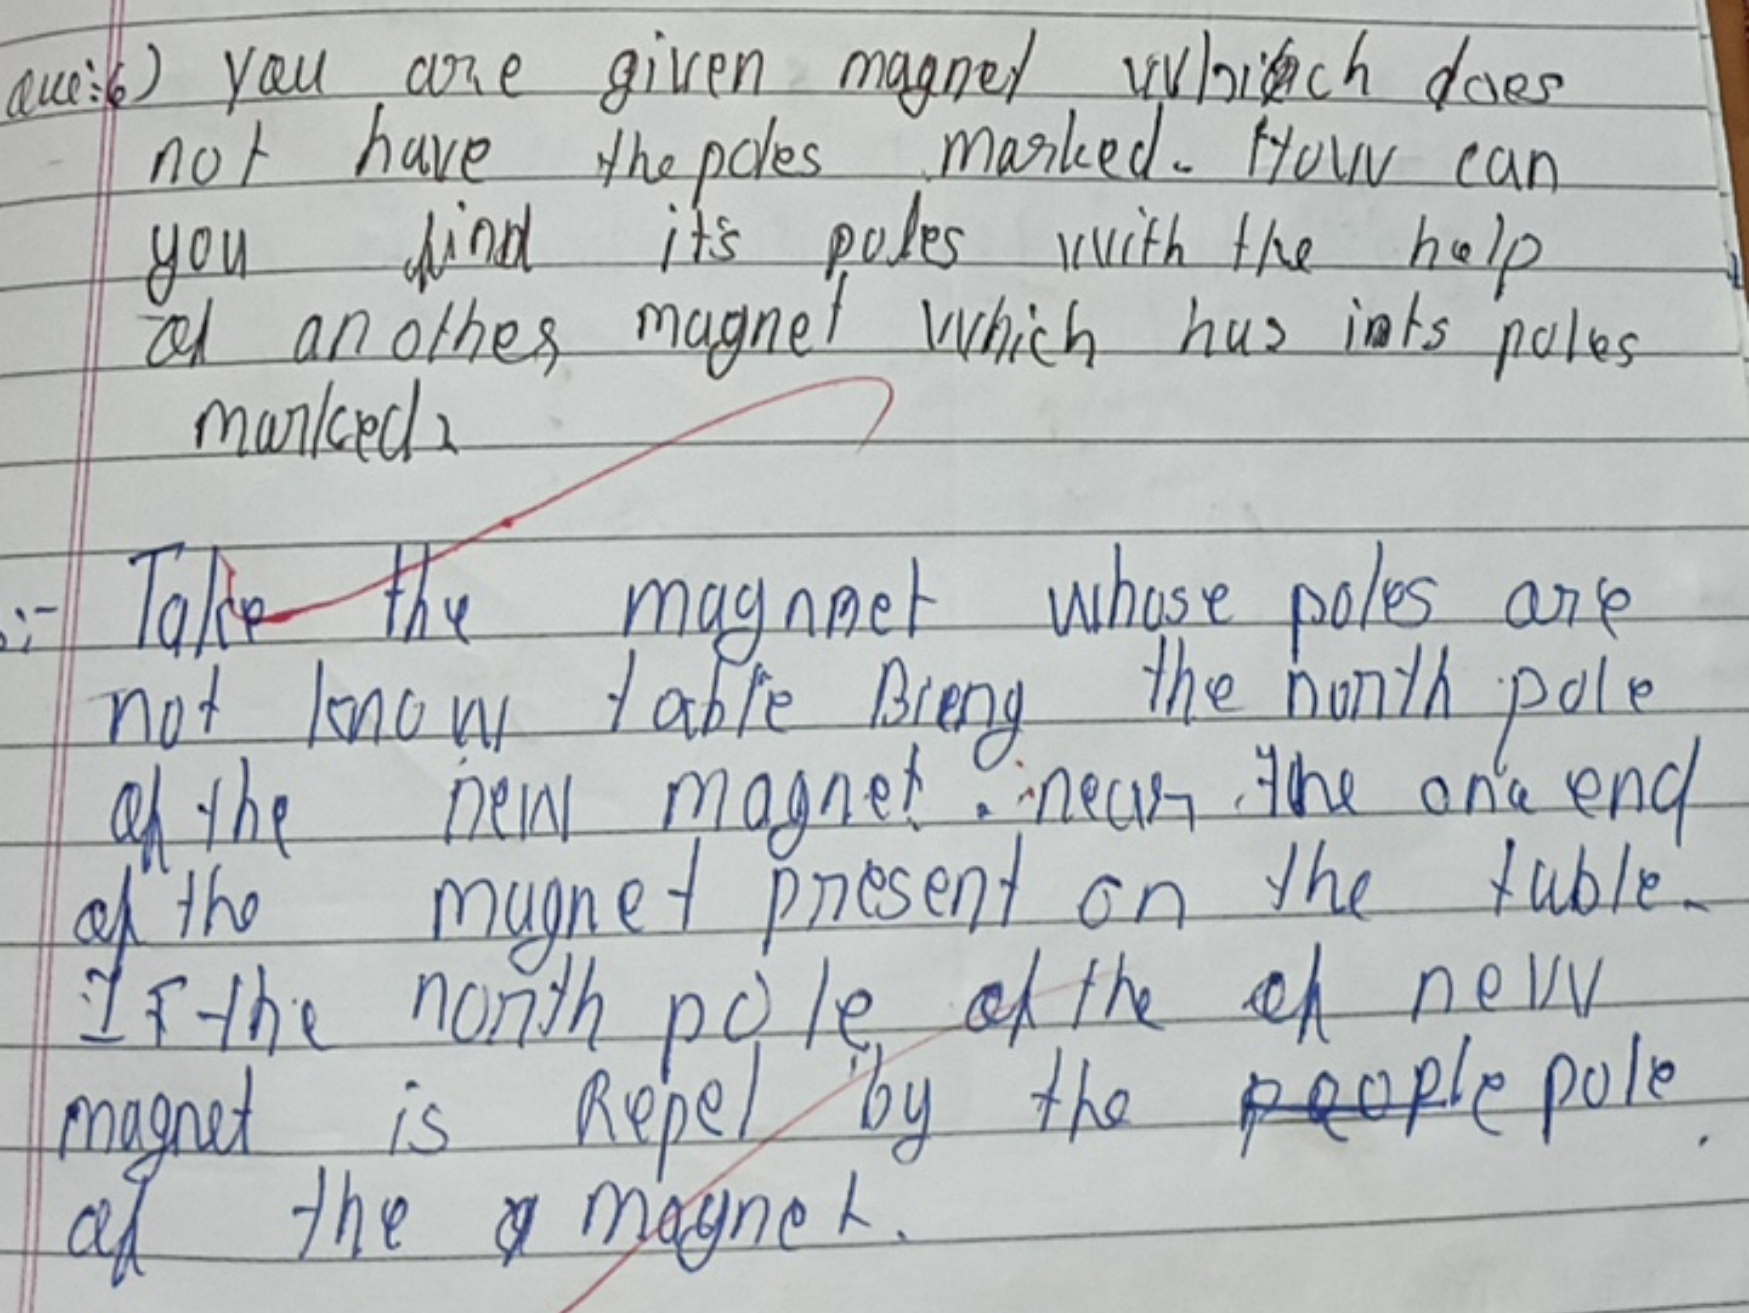 que:6) you are given magnet which does
not have the poles marked. How can
you find its poles with the help
of another magnet which has ints poles
marked?
:- Take the magnnet whose poles are
not know table Breng the north pole
of the new magnet . near the one end
of the magnet present on the table.
If the north pole of the of new
magnet is Repel by the people pole
of the magnet.